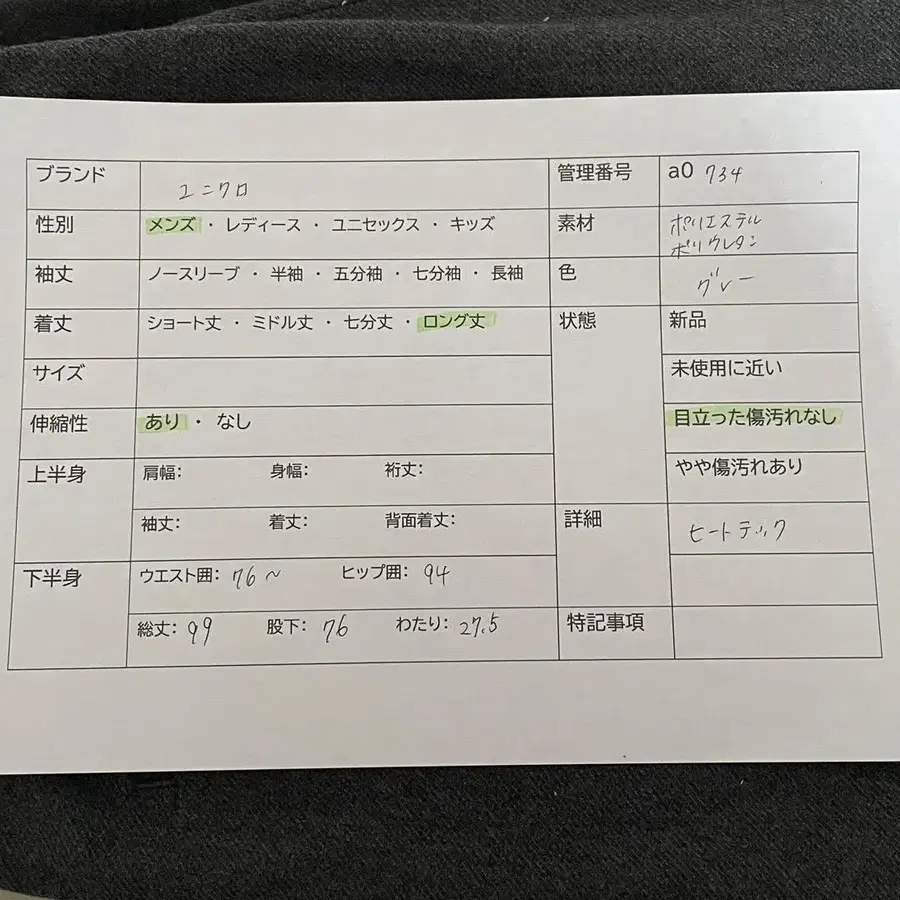 ブランド ユニクロ 管理番号 a0 734
性別 メンズ ・ レディース ・ ユニセックス ・ キッズ 素材 ポリエステル
ポリウレタン
袖丈 ノースリーブ ・ 半袖 ・ 五分袖 ・ 七分袖 ・ 長袖 色 グレー
着丈 ショート丈 ・ ミドル丈 ・ 七分丈 ・ ロング丈 状態 新品
サイズ 未使用に近い
伸縮性 あり ・ なし 目立った傷汚れなし
上半身 肩幅: 身幅: 裄丈: やや傷汚れあり
袖丈: 着丈: 背面着丈: 詳細 ヒートテック
下半身 ウエスト囲: 76〜 ヒップ囲: 94
総丈: 99 股下: 76 わたり: 27.5 特記事項